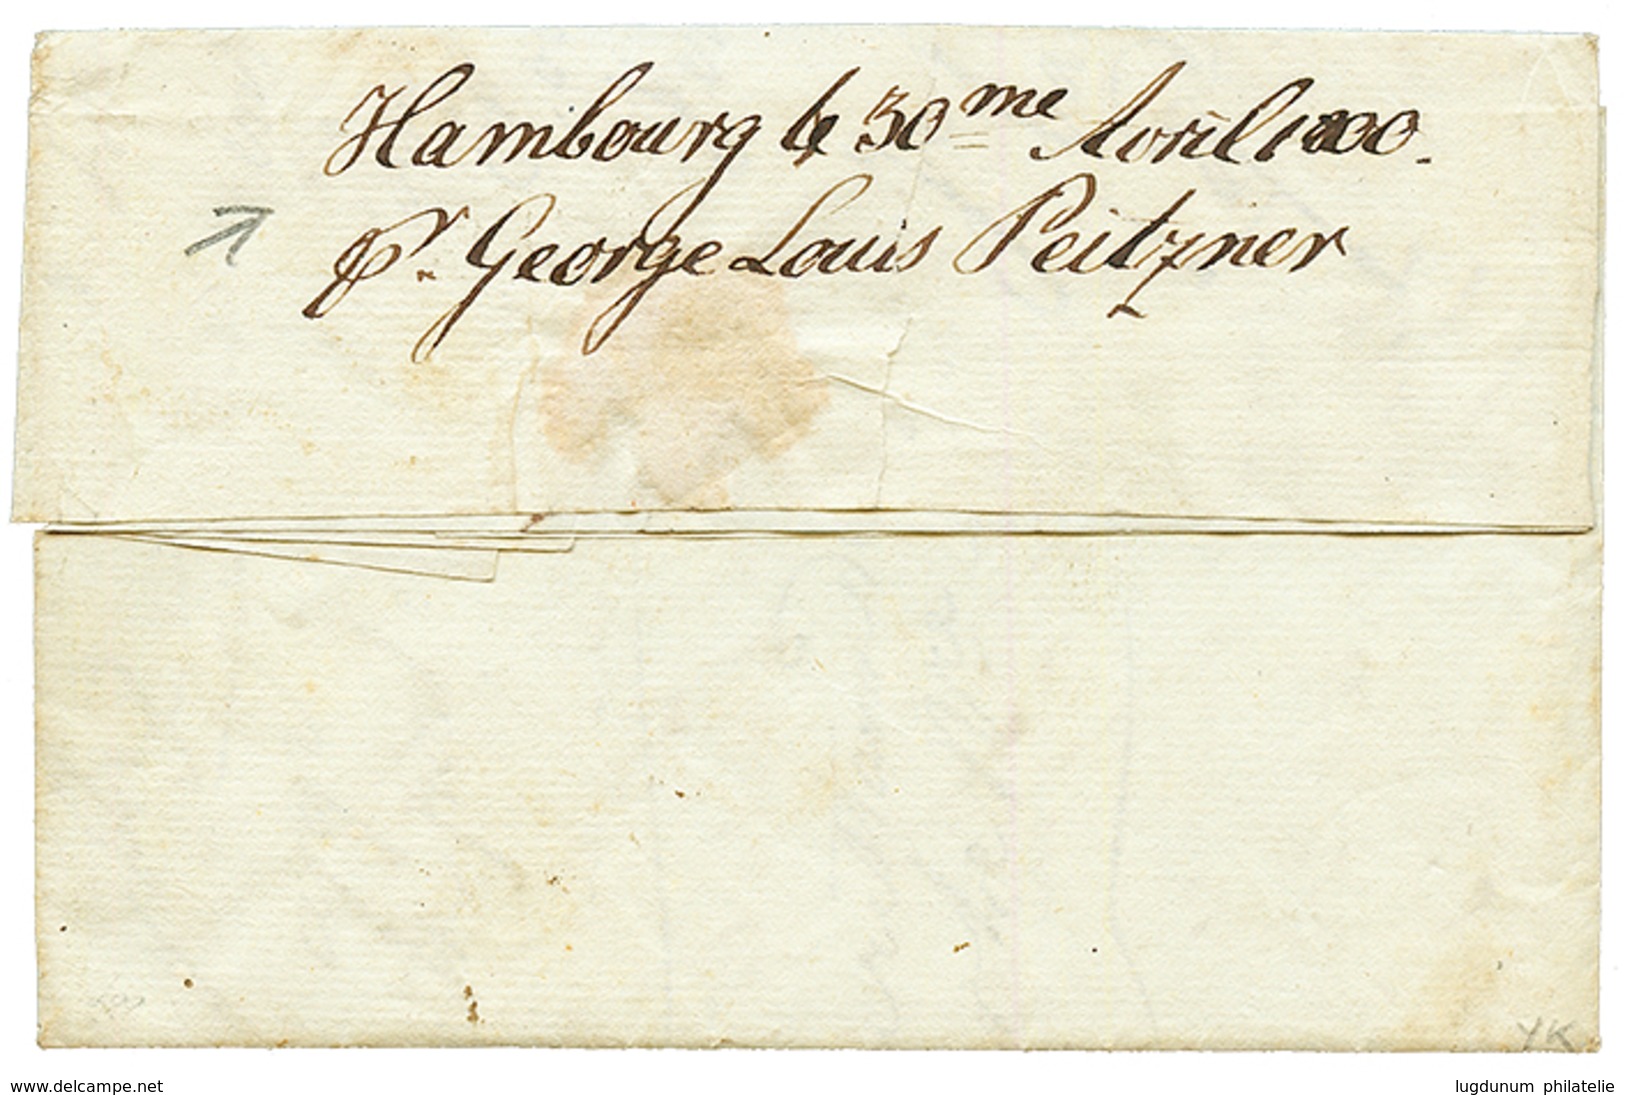 Hambourg le 30me Avril 1800.
pr. George Louis Peitzner
YK
www.delcampe.net
lugdunum philatelie